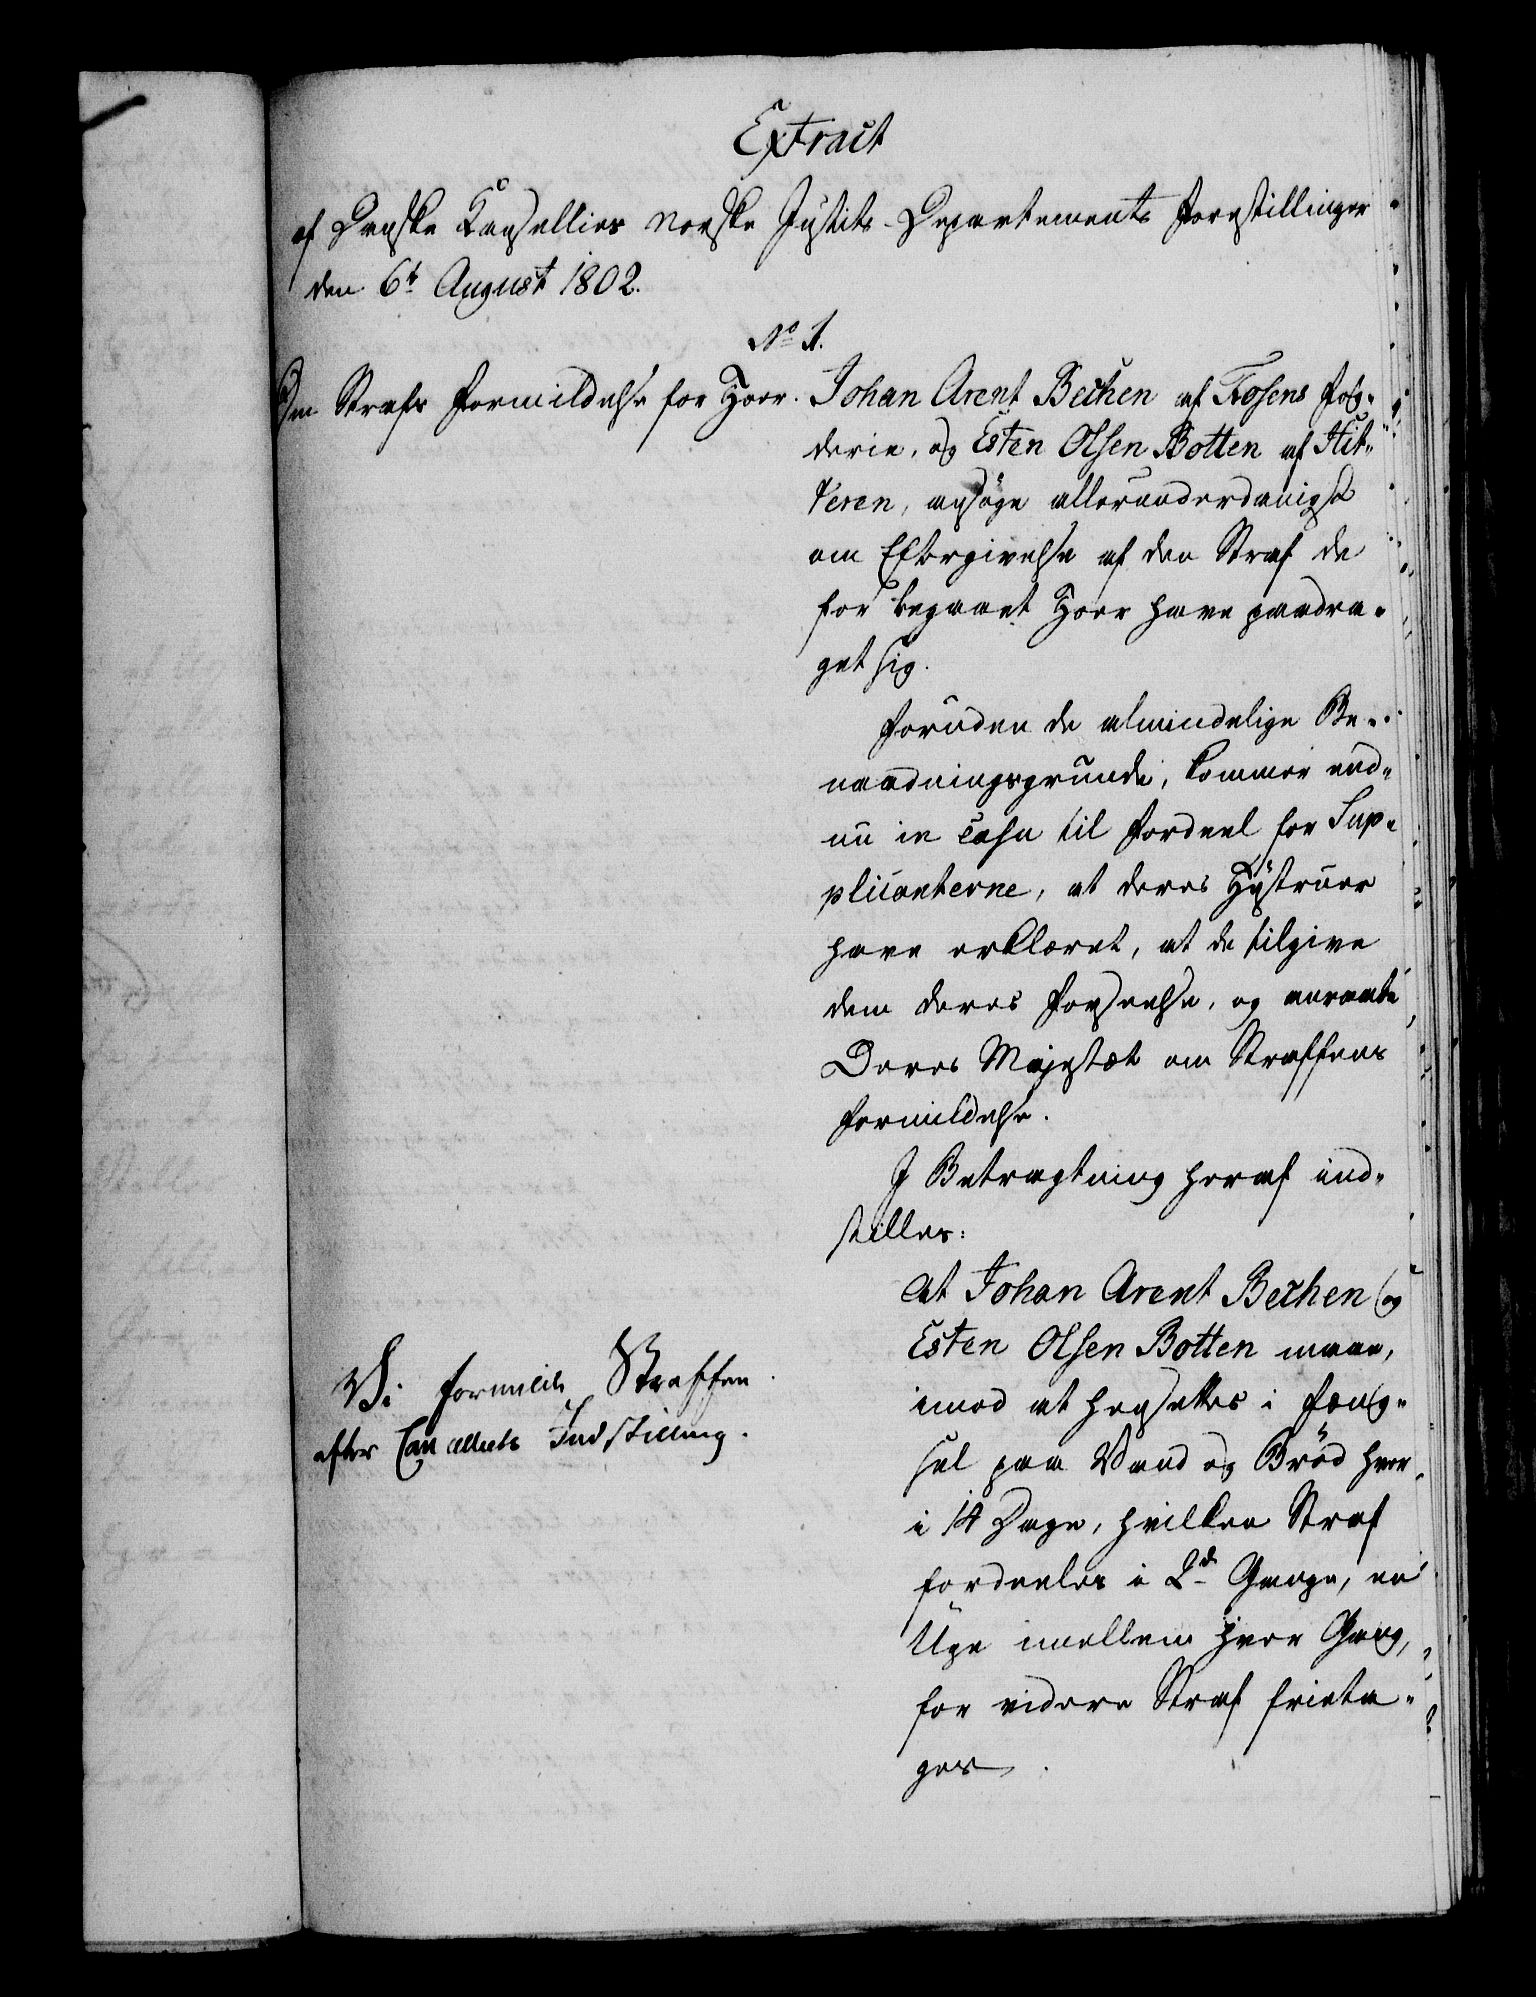 Extract
af Danske Cancellies norske Justits-Departements Forestillinger
den 6t August 1802.
No 1.
Om Strafs Formildelse for Hoer.
Johan Arent Bechen af Fosens Fog-
derie, og Esten Olsen Botten af Hit-
teren, ansøge allerunderdanigst
om Eftergivelse af den Straf de
for begaaet Hoer have paadra-
get sig.
Foruden de almindelige Be-
naadningsgrunde, kommer end-
nu in casu til Fordeel for Sup-
plicanterne, at deres Hustruer
have erklæret, at de tilgive
dem deres Forseelse, og anraabe
Deres Majestæt om Straffens
Formildelse.
I Betragtning heraf ind-
stilles:
at Johan Arent Bechen og
Esten Olsen Botten maae,
imod at hensættes i Fæng-
sel paa Vand og Brød hver
i 14 Dage, hvilken Straf
fordeeles i 2de Gange, en
Uge imellem hver Gang,
for videre Straf frieta-
ges.
Vi formilde Straffen
efter Cancelliets Indstilling.